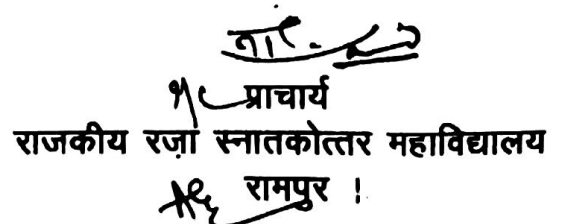 प्राचार्य
राजकीय रज़ा स्नातकोत्तर महाविद्यालय
रामपुर !